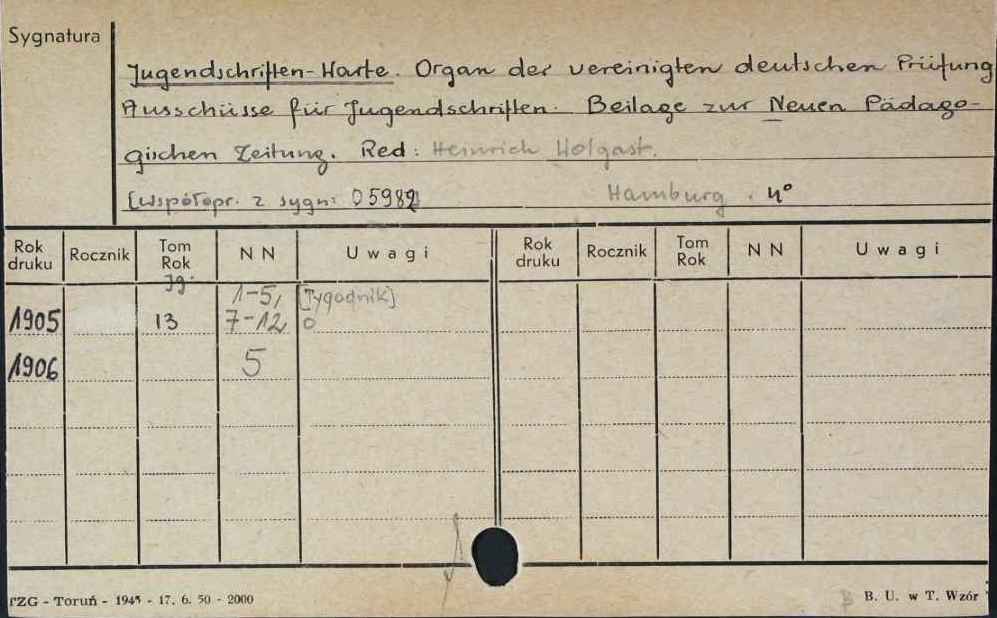 Sygnatura
Jugendschriften-Warte. Organ der vereinigten deutschen Prüfung
Ausschüsse für Jugendschriften. Beilage zur Neuen Pädago-
gischen Zeitung. Red: Heinrich Wolgast.
[Współopr. z sygn: 05982
Hamburg. 4°
Rok druku Rocznik Tom Rok NN Uwagi Rok druku Rocznik Tom Rok NN Uwagi
Jg.
1-5, [Tygodnik]
1905 13 7-12 0
1906 5
PZG - Toruń - 1945 - 17. 6. 50 - 2000
B. U. w T. Wzór